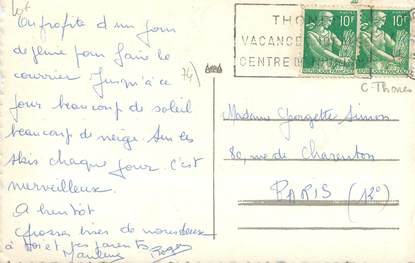 On profite d'un jour
de génie pour faire le
courrier. Jusqu'à ce
jour beaucoup de soleil
beaucoup de neige. Sur les
skis chaque jour. C'est
merveilleux.
A bientôt
Grosses bises de nous deux
à toi et tes parents
Roger
(74)
THO
VACANCE
CENTRE
10F
10F
C-Thones
Madame Georgette Simon
80, rue de Charenton
PARIS (12e)